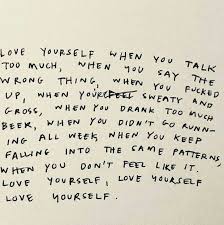 LOVE YOURSELF WHEN YOU TALK
TOO MUCH, WHEN YOU SAY THE
WRONG THING, WHEN YOU FUCKED
UP, WHEN YOU FEEL SWEATY AND
GROSS, WHEN YOU DRANK TOO MUCH
BEER, WHEN YOU DIDN'T GO RUNN-
ING ALL WEEK, WHEN YOU KEEP
FALLING INTO THE SAME PATTERNS,
WHEN YOU DON'T FEEL LIKE IT.
LOVE YOURSELF, LOVE YOURSELF
LOVE YOURSELF.